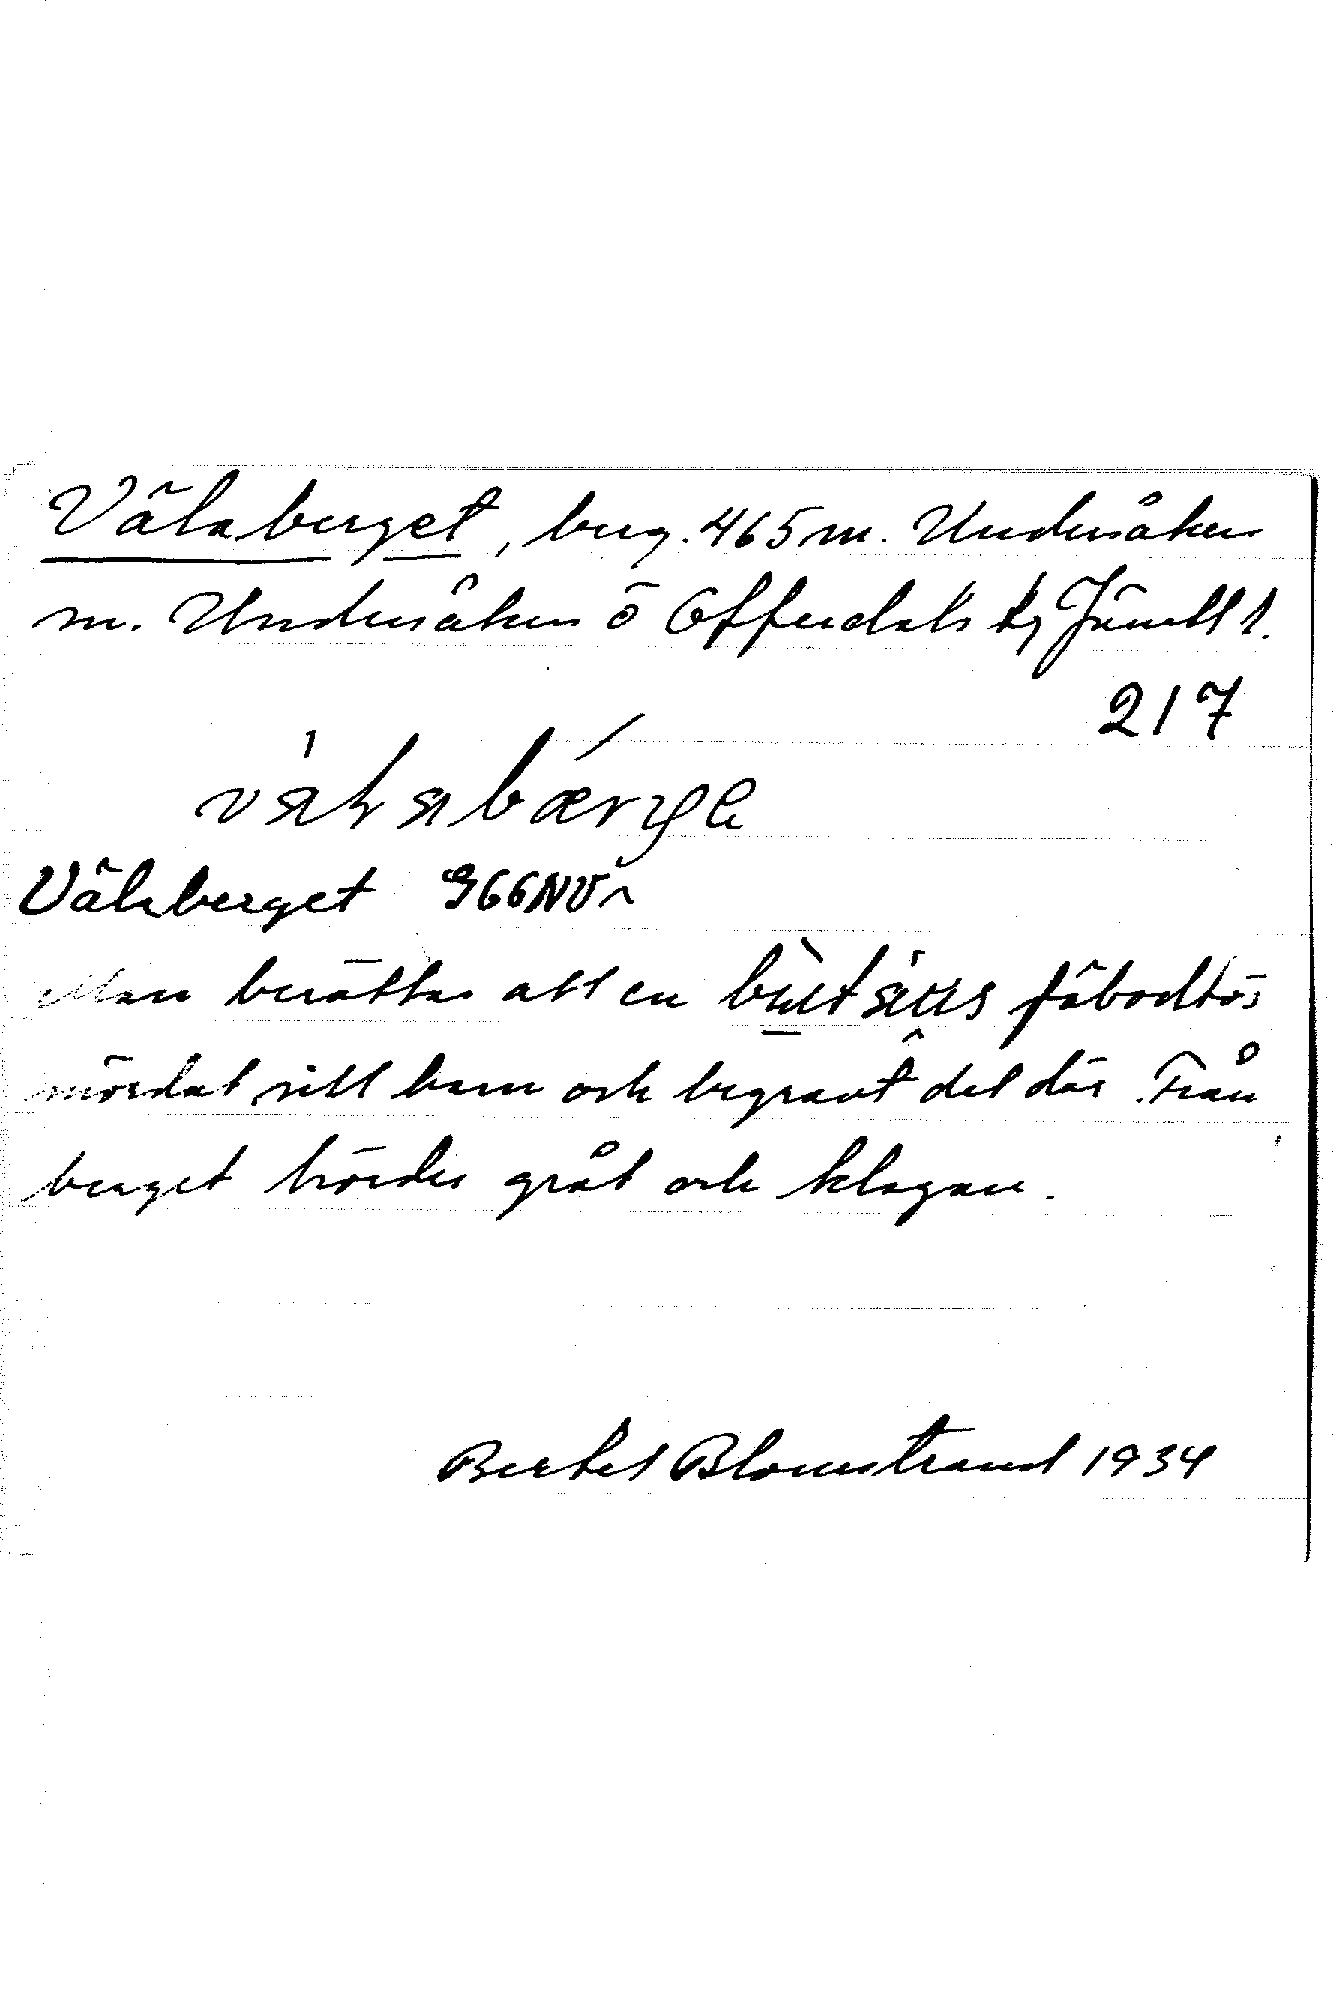 Välaberget, berg. 465 m. Undersåkers
m. Undersåkers ö Offerdals tg Jämtl l.
217
Välaberget 966NV
Man berättar att en fäbodtös
mördat sitt barn och begravt det där. Från
berget hördes gråt och klagan.
Bertel Blomstrand 1934